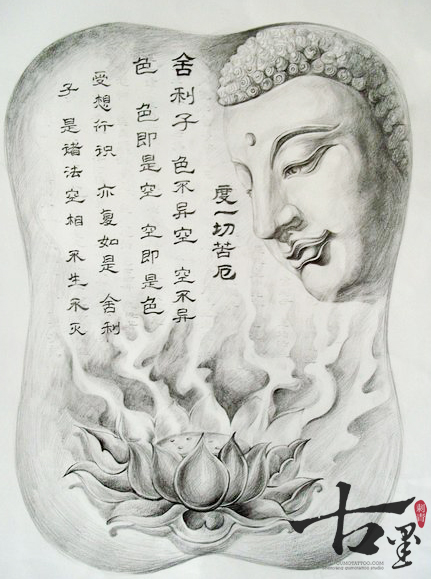 度一切苦厄
舍利子 色不异空 空不异
色 色即是空 空即是色
受想行识 亦复如是 舍利
子 是诸法空相 不生不灭
古墨
刺青
GUMOTATTOO.COM